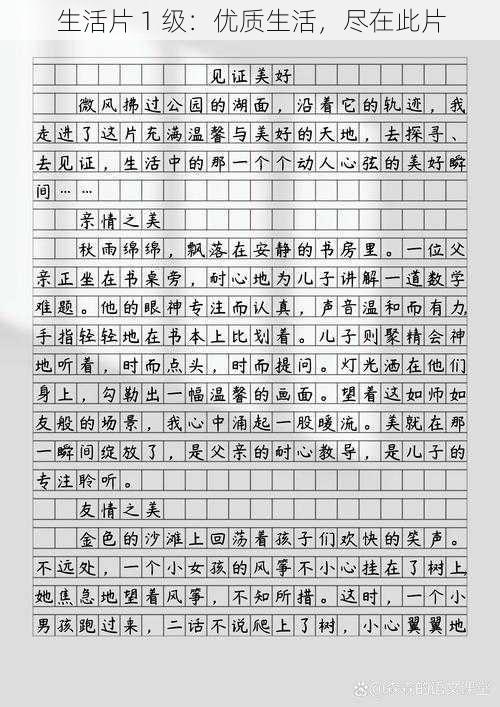 生活片1级：优质生活，尽在此片
见证美好
微风拂过公园的湖面，沿着它的轨迹，我
走进了这片充满温馨与美好的天地，去探寻、
去见证，生活中的那一个个动人心弦的美好瞬
间……
亲情之美
秋雨绵绵，飘落在安静的书房里。一位父
亲正坐在书桌旁，耐心地为儿子讲解一道数学
难题。他的眼神专注而认真，声音温和而有力，
手指轻轻地在书本上比划着。儿子则聚精会神
地听着，时而点头，时而提问。灯光洒在他们
身上，勾勒出一幅温馨的画面。望着这如师如
友般的场景，我心中涌起一股暖流。美就在那
一瞬间绽放了，是父亲的耐心教导，是儿子的
专注聆听。
友情之美
金色的沙滩上回荡着孩子们欢快的笑声。
不远处，一个小女孩的风筝不小心挂在了树上，
她焦急地望着风筝，不知所措。这时，一个小
男孩跑过来，二话不说爬上了树，小心翼翼地
@森森的语文课堂